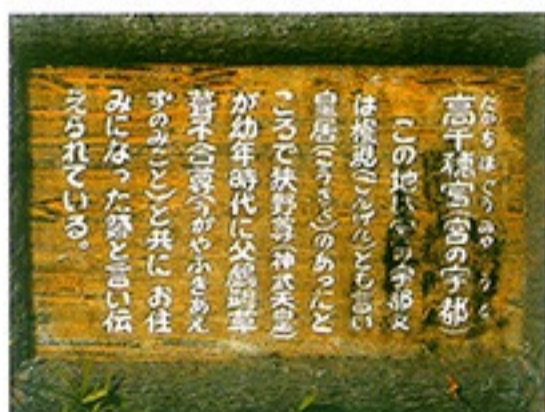 たかちほぐう みや うと
高千穂宮(宮の宇都)
この地は宮の宇都又
は権現(ごんげん)とも言い
皇居(こうきょ)のあったと
ころで狭野尊(神武天皇)
が幼年時代に父鵜鶿草
葺不合尊(うがやふきあえ
ずのみこと)と共に お住
みになった跡と言い伝
えられている。